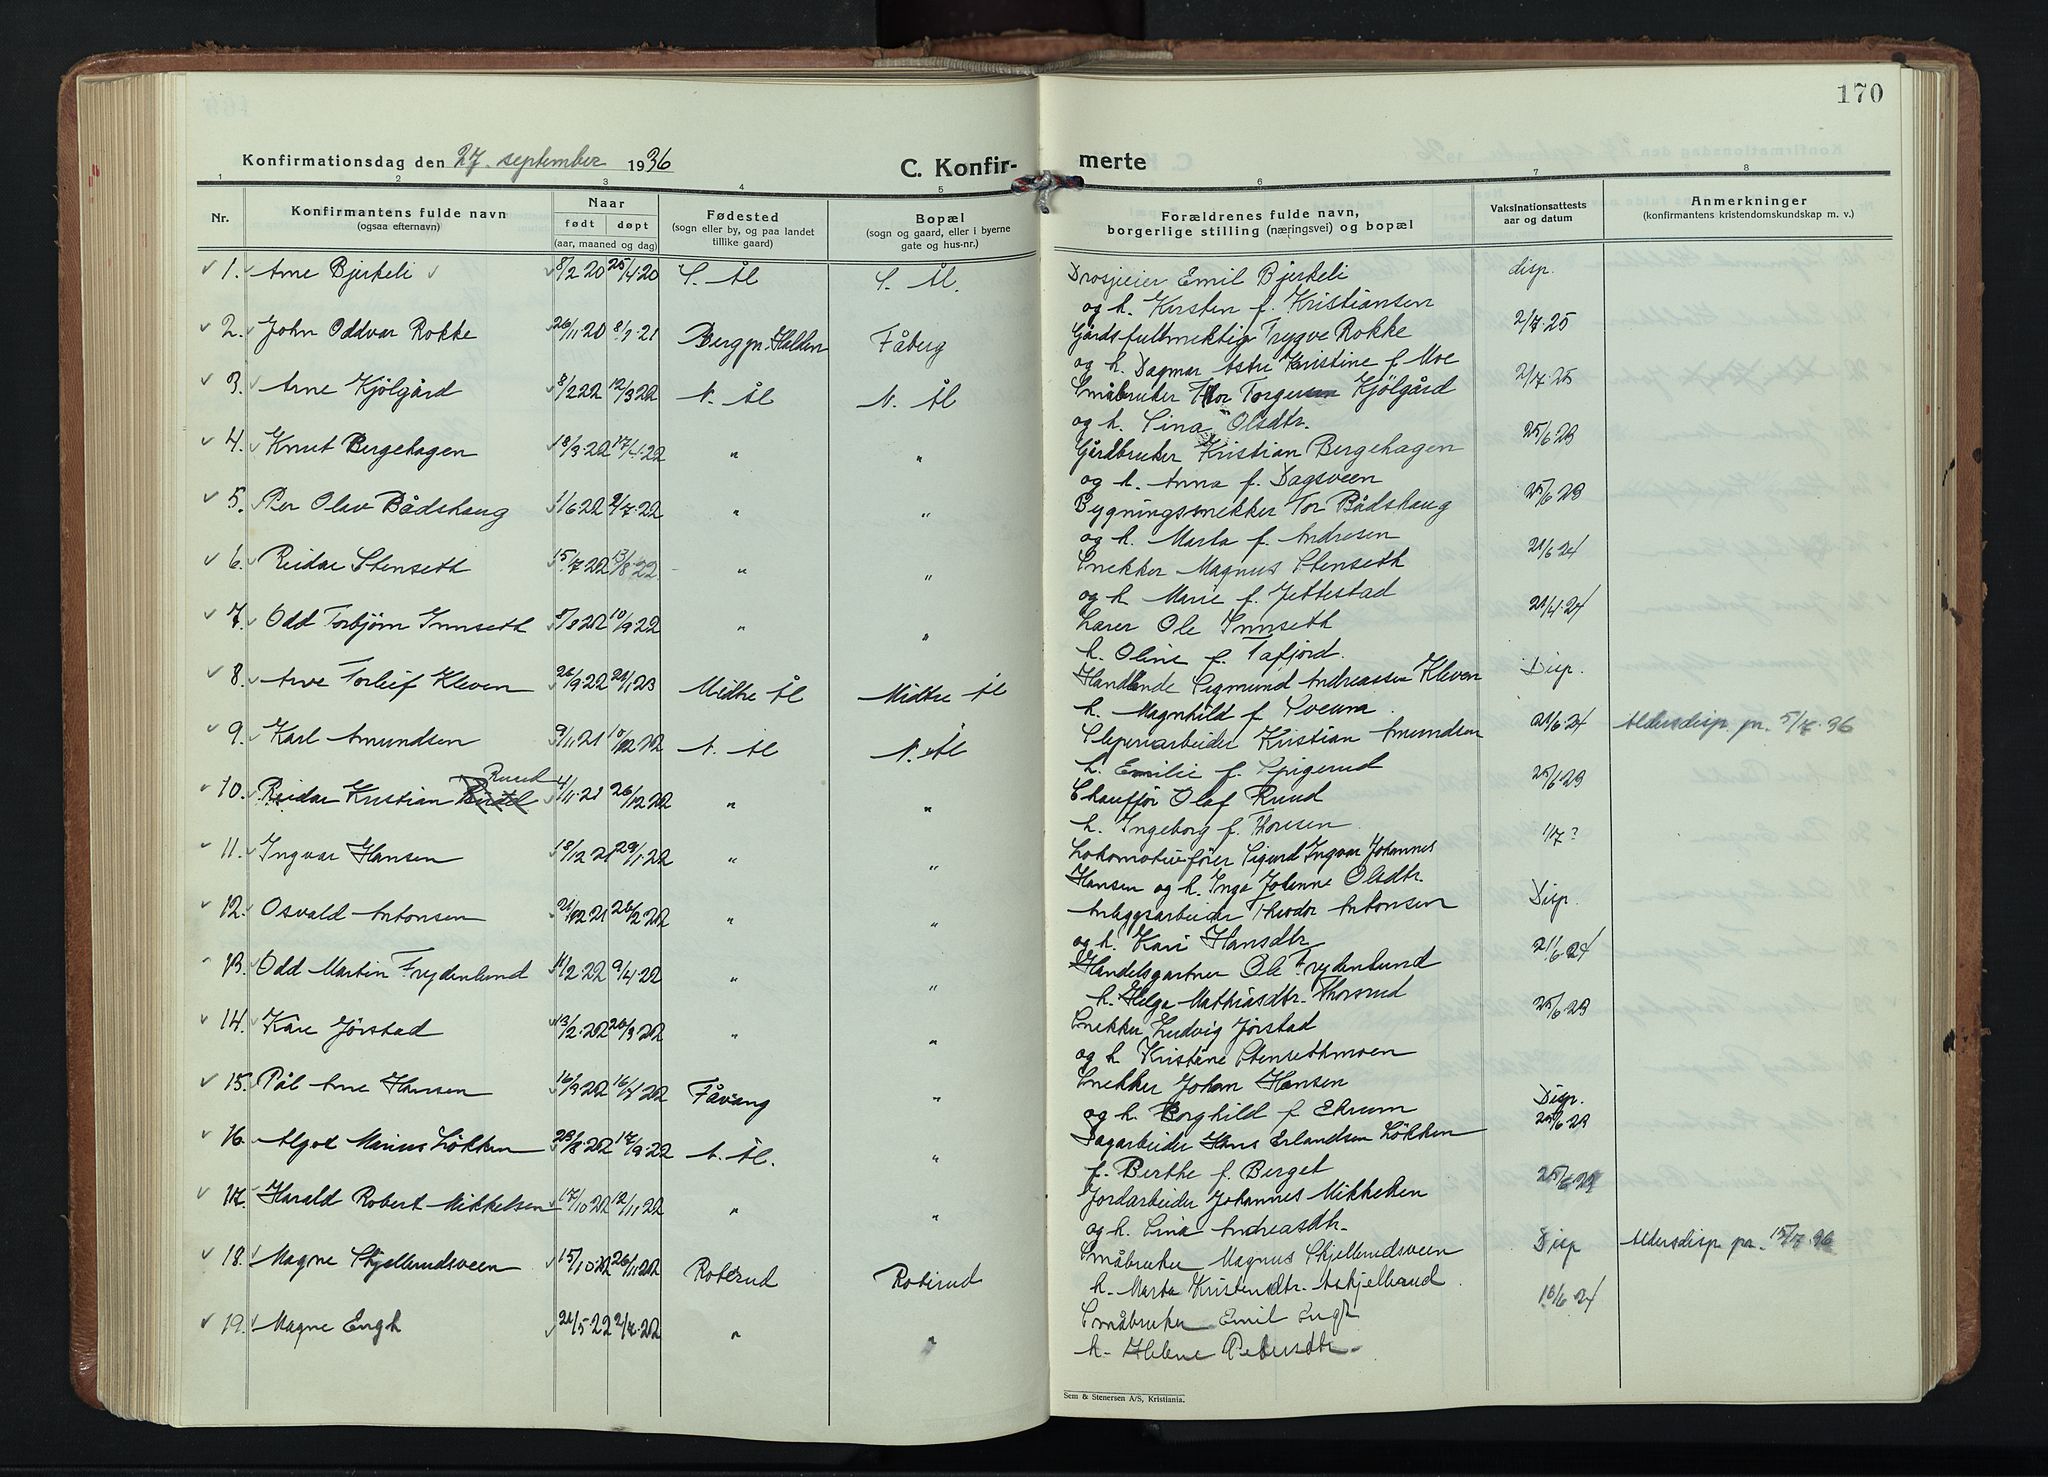 170
Konfirmationsdag den 27. september 1936
C. Konfir-
merte
1 2 3 4 5 6 7 8
Nr.
Konfirmantens fulde navn
(ogsaa efternavn)
Naar
født døpt
(aar, maaned og dag)
Fødested
(sogn eller by, og paa landet
tillike gaard)
Bopæl
(sogn og gaard, eller i byerne
gate og hus-nr.)
Forældrenes fulde navn,
borgerlige stilling (næringsvei) og bopæl
Vaksinationsattests
aar og datum
Anmerkninger
(konfirmantens kristendomskundskap m. v.)
1. Arne Bjerkeli 8/2 20 25/4 20 S. Ål S. Ål. Drosjeeier Emil Bjerkeli disp.
og h. Kirsten f. Kristiansen
2. John Oddvar Rokke 26/11 20 8/9 21 Berg pr. Halden Fåberg Gårdsfullmektig Trygve Rokke 2/7 25
og h. Dagmar Astri Kristine f. Moe
3. Arne Kjölgård 8/2 22 12/3 22 N. Ål N. Ål Småbruker Thor Torgersen Kjölgård 2/7 25
og h. Lina Olsdtr.
4. Knut Bergehagen 18/3 22 17/4 22 " " Gårdbruker Kristian Bergehagen 25/6 23
og h. Anna f. Dagsveen
5. Per Olav Bådshaug 1/6 22 2/7 22 " " Bygningssnekker Tor Bådshaug 25/6 23
og h. Marta f. Andresen
6. Reidar Stenseth 15/7 22 13/8 22 " " Snekker Magnus Stenseth 21/6 24
og h Marie f. Jettestad
7. Odd Torbjørn Innseth 8/8 22 10/9 22 " " Lærer Ole Innseth 21/4 24
h. Oline f. Tafjord.
8. Arve Torleif Kleven 26/9 22 21/1 23 Midtre Ål Midtre Ål Handlende Sigmund Andreassen Kleven Disp.
h. Magnhild f. Sveum.
9. Karl Amundsen 9/1 21 10/12 22 N. Ål N. Ål Sliperiarbeider Kristian Amundsen 21/6 24 Aldersdisp. pr. 5/7 36
h. Emilie f. Spigerud
10. Reidar Kristian Ruud 4/11 21 26/12 22 " " Chauffør Olaf Ruud 25/6 23
h. Ingeborg f. Thoresen
11. Ingvar Hansen 18/12 21 29/1 22 " " Lokomotivfører Sigurd Ingvar Johannes 1/7 ?
Hansen og h. Inga Johanne Olsdtr.
12. Osvald Antonsen 21/12 21 26/2 22 " " Anleggsarbeider Theodor Antonsen Disp.
og h. Kari Hansdtr
13. Odd Martin Frydenlund 11/2 22 9/4 22 " " Handelsgartner Ole Frydenlund 21/6 24
h. Helga Mathiasdtr. Thorsrud
14. Kåre Jørstad 13/2 22 20/3 22 " " Snekker Ludvig Jørstad 25/6 23
og h Kristine Stensethmoen
15. Pål Arne Hansen 16/3 22 16/7 22 Fåvang " Snekker Johan Hansen Disp.
og h. Borghild f Ekrum
16. Algot Marius Løkken 23/8 22 17/9 22 N. Ål. " Dagarbeider Hans Erlandsen Løkken 25/6 23
f. Berthe f. Berget
17. Harald Robert Mikkelsen 17/10 22 12/11 22 " " Jordarbeider Johannes Mikkelsen 25/6 24
og h. Lina Andreasdtr.
18. Magne Skjellerudsveen 15/10 22 26/11 22 Roterud Roterud Småbruker Magnus Skjellerudsveen Disp Aldersdisp. pr. 15/7 36
h. Marta Kristendtr. Askjellrud.
19. Magne Engh 21/5 22 2/7 22 " " Småbruker Emil Engh 16/6 24
h. Helene Pedersdtr.
Sem & Stenersen A/S, Kristiania.